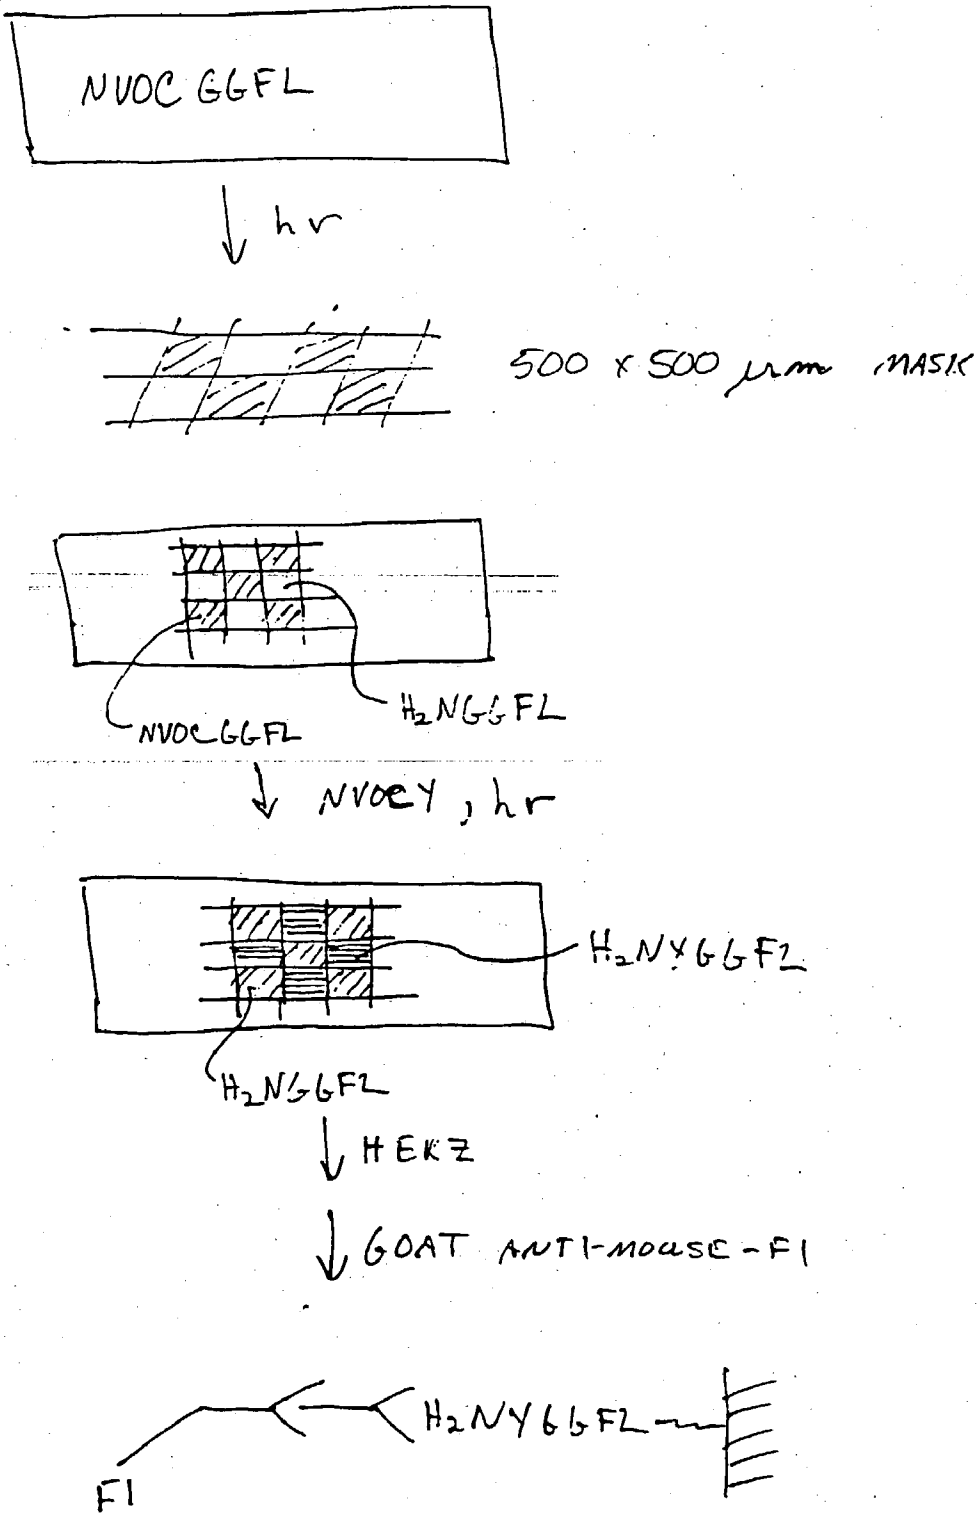 NVOC GGFL
hν
500 x 500 μm MASK
H₂NGGFL
NVOCGGFL
NVOCY, hν
H₂NYGGFL
H₂NGGFL
HERZ
GOAT ANTI-MOUSE-Fl
H₂NYGGFL
Fl